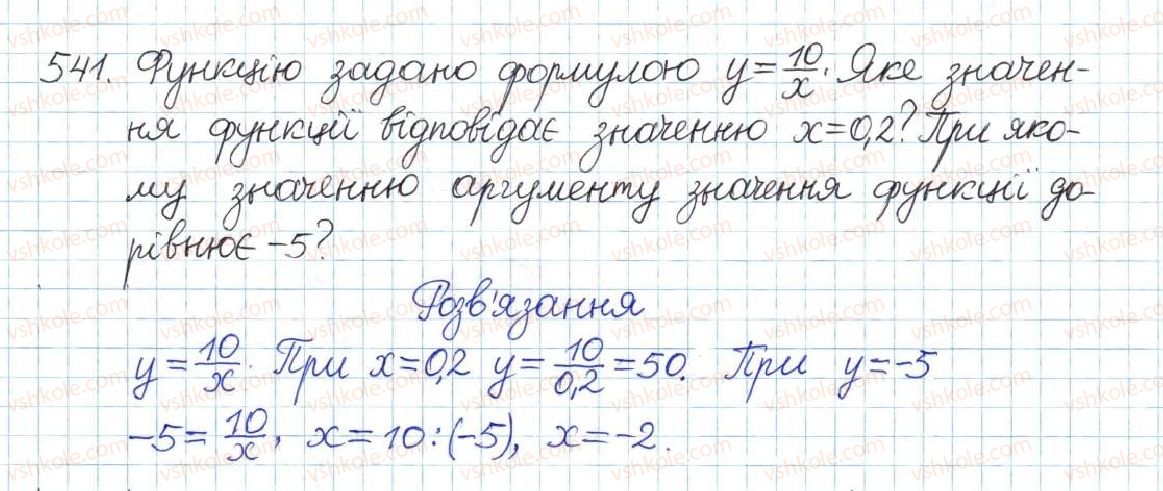 541. Функцію задано формулою y = 10/x. Яке значен-
ня функції відповідає значенню x=0,2? При яко-
му значенню аргументу значення функції до-
рівнює -5?
Розв'язання
y = 10/x. При x=0,2 y = 10/0,2 = 50. При y=-5
-5 = 10/x, x=10:(-5), x=-2.